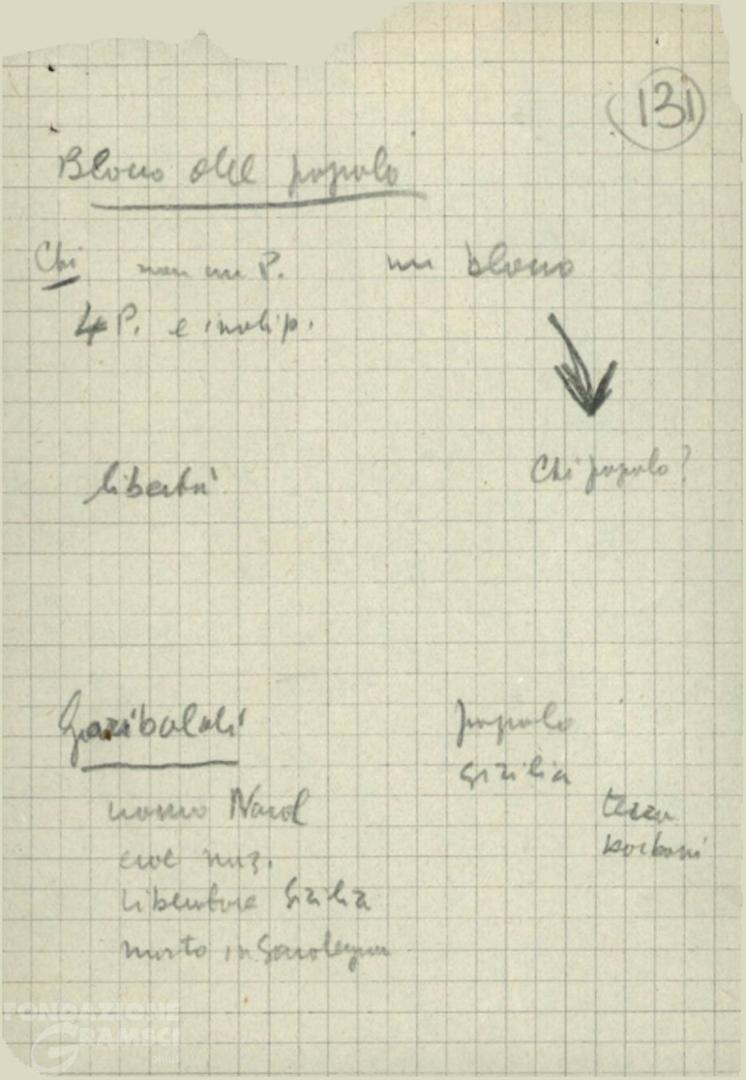 131
Blocco del popolo
Chi non un P. un blocco
4 P. e indip.
libertà Chi popolo?
Garibaldi popolo
Sicilia
uomo Nord terra
eroe naz. borboni
liberatore Sicilia
morto in Sardegna
FONDAZIONE
GRAMSCI